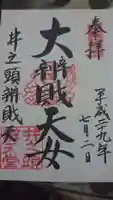 奉拝
平成二十九年
七月二日
大辨財天女
井之頭辨財天